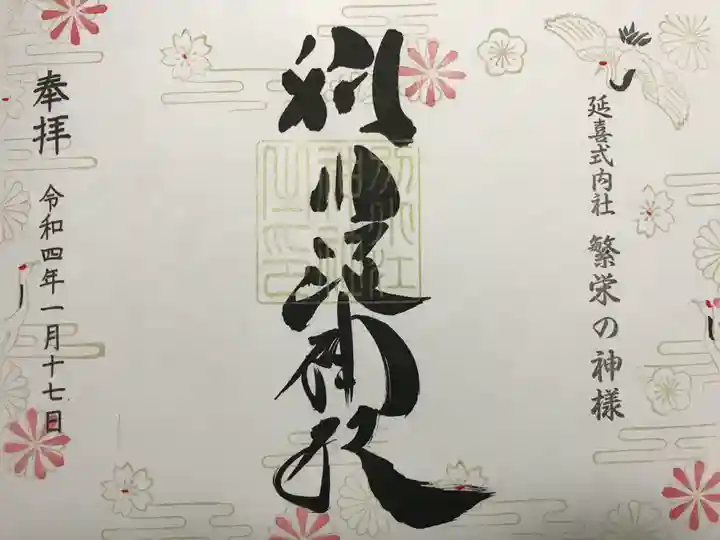 延喜式内社
繁栄の神様
別小江神社
奉拝
令和四年一月十七日